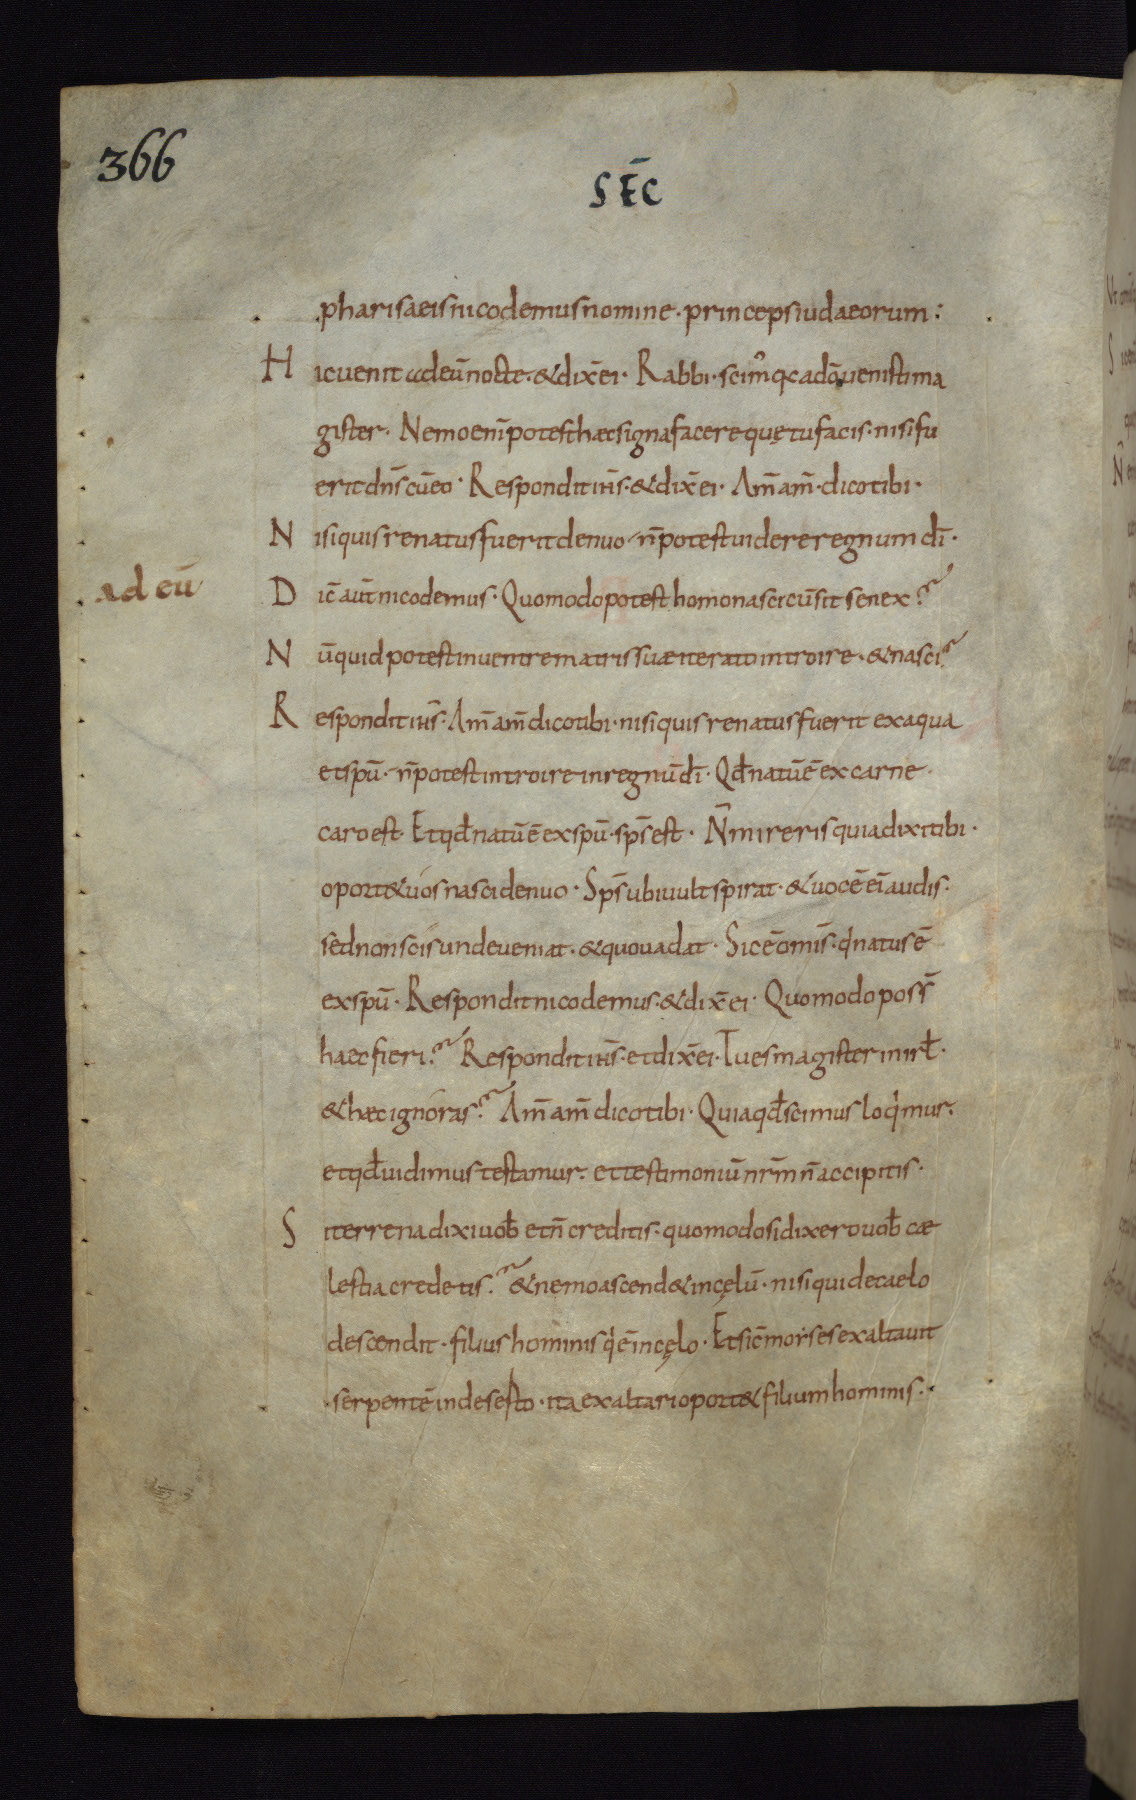 366
SEC̄
pharisaeis nicodemus nomine · princeps iudaeorum :
Hic venit ad eū nocte · & dix̄ ei · Rabbi · scim̓ q̄a ad̄o venisti ma
gister · Nemo eni̅ potest haec signa facere quę tu facis · nisi fu
erit dn̄s cū eo · Respondit ih̄s · & dix̄ ei · Am̄ am̄ · dico tibi ·
Nisi quis renatus fuerit denuo · n̄ potest uidere regnum dī ·
ad eū
Dic̄ aut̄ nicodemus · Quomodo potest homo nasci cū sit senex ?
Nūquid potest in uentrem matris suae iterato introire · & nasci ?
Respondit ih̄s · Am̄ am̄ dico tibi · nisi quis renatus fuerit ex aqua
et spū · n̄ potest introire in regnū dī · Qđ natū ē ex carne ·
caro est · Et qđ natū ē ex spū · sps̄ est · N̄ mireris quia dixi tibi ·
oport& uos nasci denuo · Sps̄ ubi uult spirat · & uocē eī audis ·
sed non scis unde veniat · & quo vadat · Sic ē omīs · q̇ natus ē
ex spū · Respondit nicodemus · & dix̄ ei · Quomodo poss̄
haec fieri ? Respondit ih̄s · et dix̄ ei · Tu es magister in irł ·
& haec ignoras ? Am̄ am̄ dico tibi · Quia qđ scimus loq̇mur ·
et qđ uidimus testamur · et testimoniū nr̄m n̄ accipitis ·
Si terrena dixi uob̄ et n̄ creditis · quomodo si dixero uob̄ cae
lestia credetis ? & nemo ascend& in cęlū · nisi qui de caelo
descendit · filius hominis q̇ ē in cęlo · Et sic̄ moyses exaltauit
serpentē in deserto · ita exaltari oport& filium hominis ·